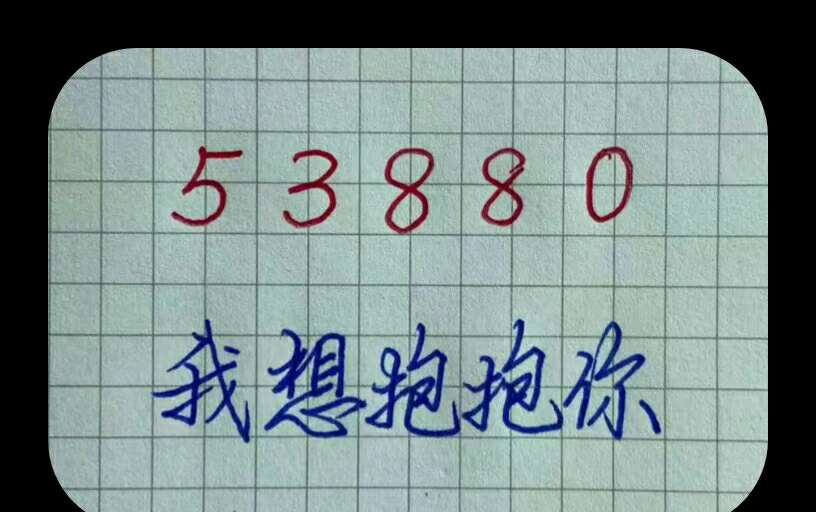 53880
我想抱抱你